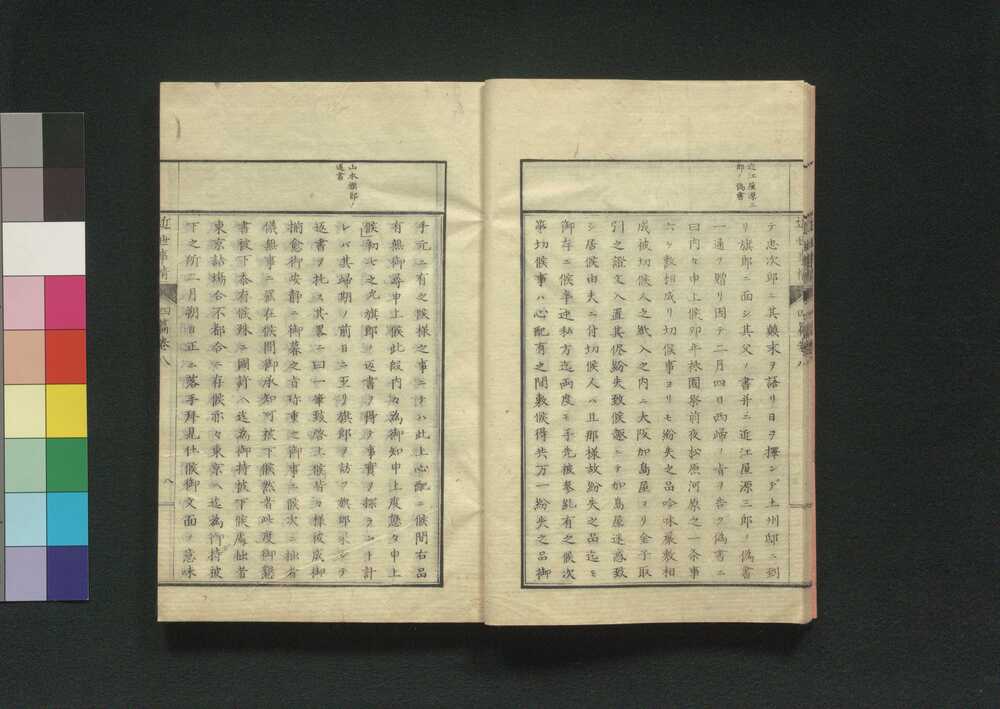 近江屋源三
郎ノ偽書
テ忠次郎ニ其顛末ヲ語リ日ヲ擇ンデ土州邸ニ到
リ旗郎ニ面シ其父ノ書并ニ近江屋源三郎ノ偽書
一通ヲ贈リ因テ二月四日西歸ノ旨ヲ告ク偽書ニ
曰内々申上候卯年祇園祭前夜松原河原之一条事
六ヶ敷相成リ切候事ヨリモ紛失之品吟味厳敷相
成被切候人之紙入之内ニ大阪加島屋ヨリ金子取
引之證文入置其侭紛失致候趣ニテ加島屋迷惑致
シ居候由夫ニ付切候人ハ且那様故紛失之品迄モ
御存ニ候半迚私方迄両度モ手先被参能有之候次
第切候事ハ心配有之間敷候得共万一紛失之品御
山本旗郎ノ
返書
手元ニ有之候様之事ニテハ此上心配ニ候間右品
有無御尋申上候此段内々為御知申上度態々申上
候初七之丸旗郎ノ返書ヲ得テ事實ヲ探ラント計
レバ其歸期ノ前日ニ至リ旗郎ヲ訪フ旗郎水シテ
返書ヲ托ス其畧ニ曰一筆致啓上候皆々様彼成御
揃愈御安静ニ御暮之旨珍重之御事ニ候次ニ拙者
儀無事ニ罷在候間御承知可被下候然者此度御懇
書被下忝有候殊ニ國許ヘ迄為御持被下候處拙者
東京詰場合不都合ニ有候亦々東京ヘ迄為御持被
下之所二月朔日正ニ落手拜見仕候御文面ノ意味
近世事情
四篇卷八
八